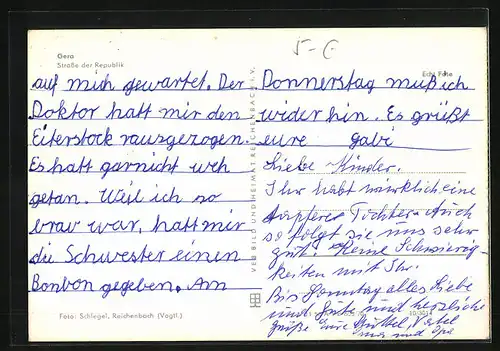 Gera
Straße der Republik
5-6
Echt Foto
auf mich gewartet. Der
Doktor hatt mir den
Eiterstock rausgezogen.
Es hatt garnicht weh
getan. Weil ich so
brav war, hatt mir
die Schwester einen
Bonbon gegeben. Am
Donnerstag muß ich
wider hin. Es grüßt
eure Gabi
Liebe Kinder.
Ihr habt wirklich eine
tapfere Tochter. Auch
so folgt sie uns sehr
gut. Keine Schwierig-
keiten mit Ihr.
Bis Sonntag alles Liebe
und Gute und herzliche
Grüße Eure Muttel, Vatel
und Opa
VEB BILD UND HEIMAT REICHENBACH I. V.
Foto: Schlegel, Reichenbach (Vogtl.)